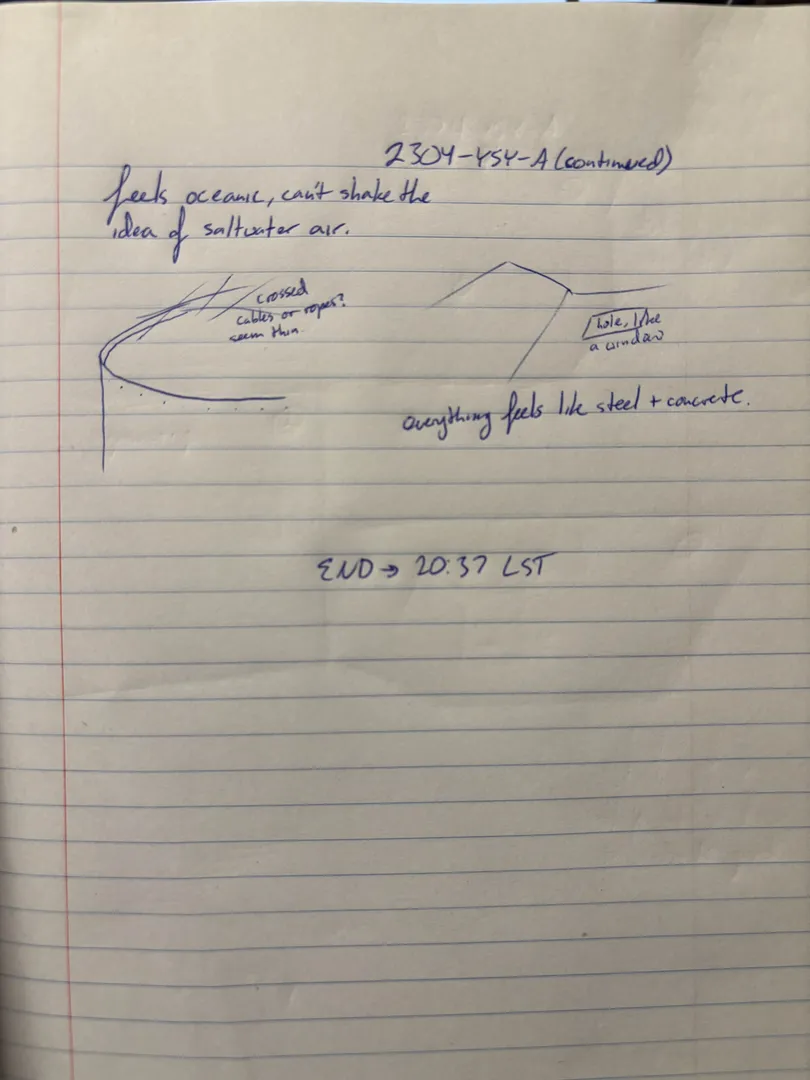 2304-YSY-A (continued)
feels oceanic, can't shake the
idea of saltwater air.
crossed
cables or ropes?
seem thin.
hole, like
a window
everything feels like steel + concrete.
END → 20:37 LST